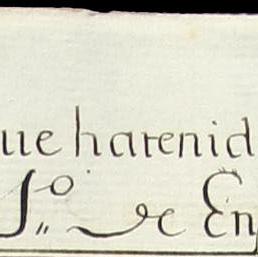 ue ha renid
S.º de En